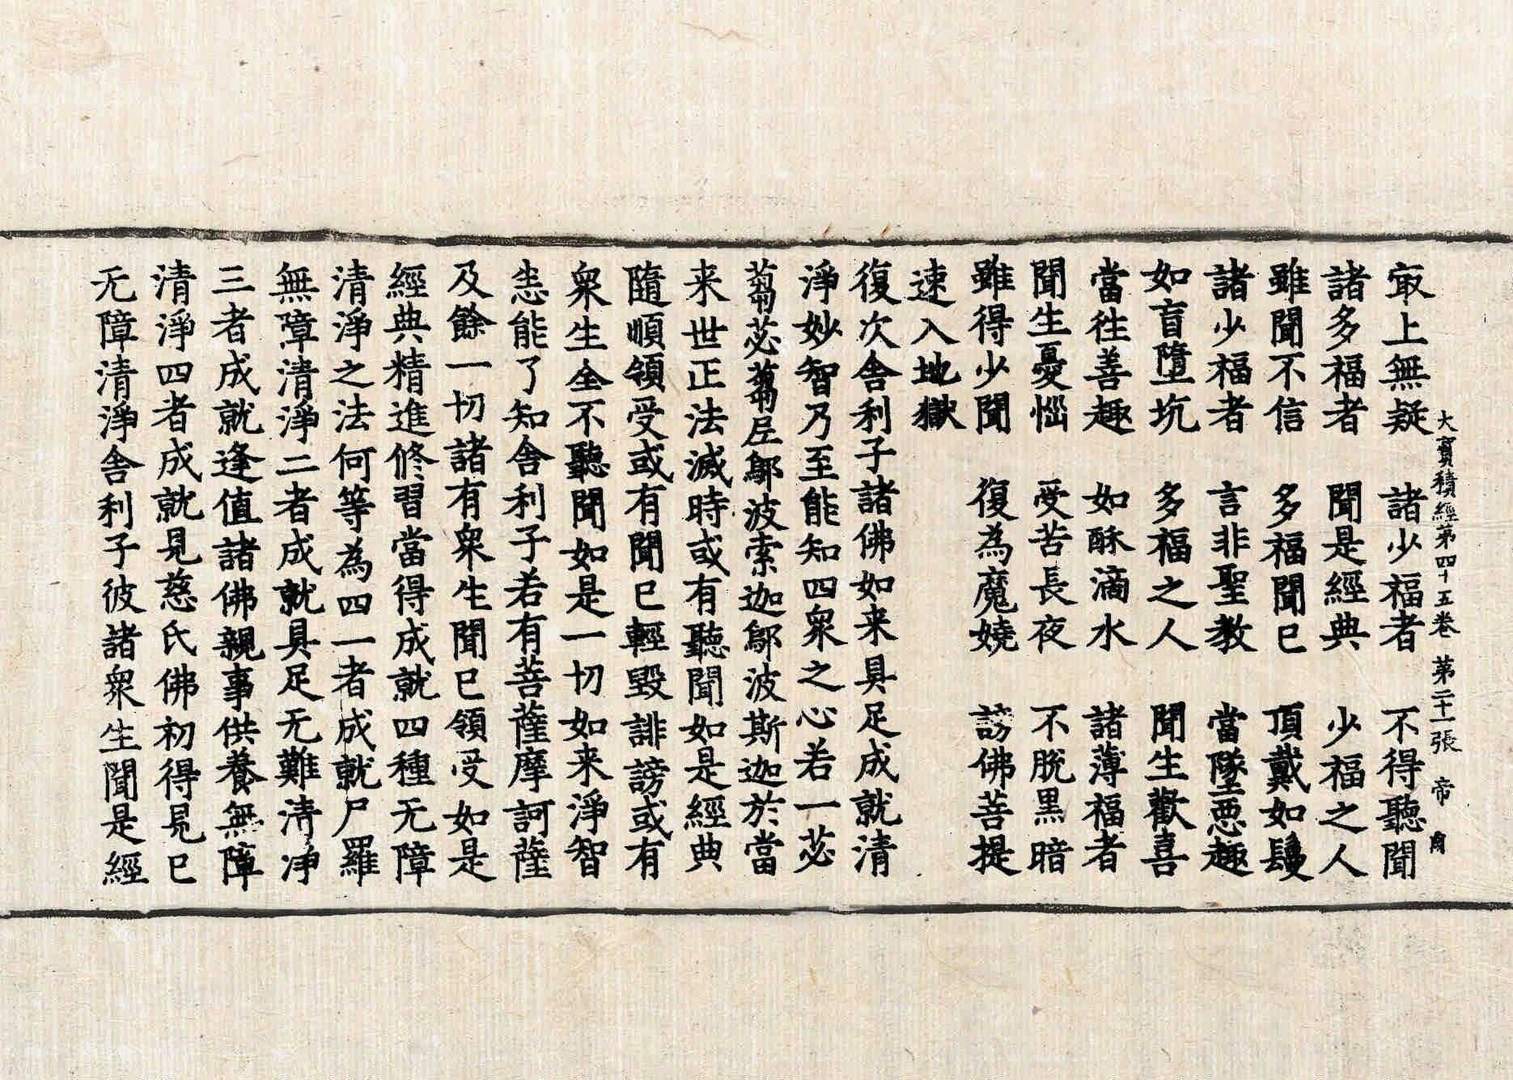 大寶積經第四十五卷　第二十一張　帝
㝡上無疑　諸少福者　不得聽聞
諸多福者　聞是經典　少福之人
雖聞不信　多福聞已　頂戴如鬘
諸少福者　言非聖教　當墜惡趣
如盲墮坑　多福之人　聞生歡喜
當往善趣　如酥滴水　諸薄福者
聞生憂惱　受苦長夜　不脫黑暗
雖得少聞　復為魔嬈　謗佛菩提
速入地獄
復次舍利子諸佛如来具足成就清
淨妙智乃至能知四衆之心若一苾
蒭苾蒭尼鄔波索迦鄔波斯迦於當
来世正法滅時或有聽聞如是經典
隨順領受或有聞已輕毀誹謗或有
衆生全不聽聞如是一切如来淨智
悉能了知舍利子若有菩薩摩訶薩
及餘一切諸有衆生聞已領受如是
經典精進修習當得成就四種无障
清淨之法何等為四一者成就尸羅
無障清淨二者成就具足无難清淨
三者成就逢值諸佛親事供養無障
清淨四者成就見慈氏佛初得見已
无障清淨舍利子彼諸衆生聞是經